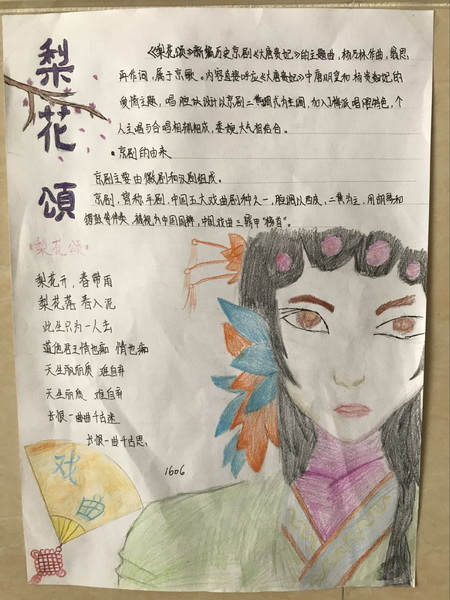 梨花頌
《梨花颂》新编历史京剧《大唐贵妃》的主题曲，杨乃林作曲，翁思
再作词，属于京歌。内容直接呼应《大唐贵妃》中唐明皇和杨贵妃的
爱情主题，唱腔设计以京剧二黄调式为主调，加入梅派唱腔特色，个
人主唱与合唱相辅相成，委婉大气相结合。
·京剧的由来
京剧主要由徽剧和汉剧组成。
京剧，曾称平剧，中国五大戏曲剧种之一，腔调以西皮、二黄为主，用胡琴和
锣鼓等伴奏，被视为中国国粹，中国戏曲三鼎甲“榜首”。
·梨花颂·
梨花开，春带雨
梨花落，春入泥
此生只为一人去
道他君王情也痴 情也痴
天生丽质 难自弃
天生丽质 难自弃
长恨一曲千古迷
长恨一曲千古思
1606
戏曲